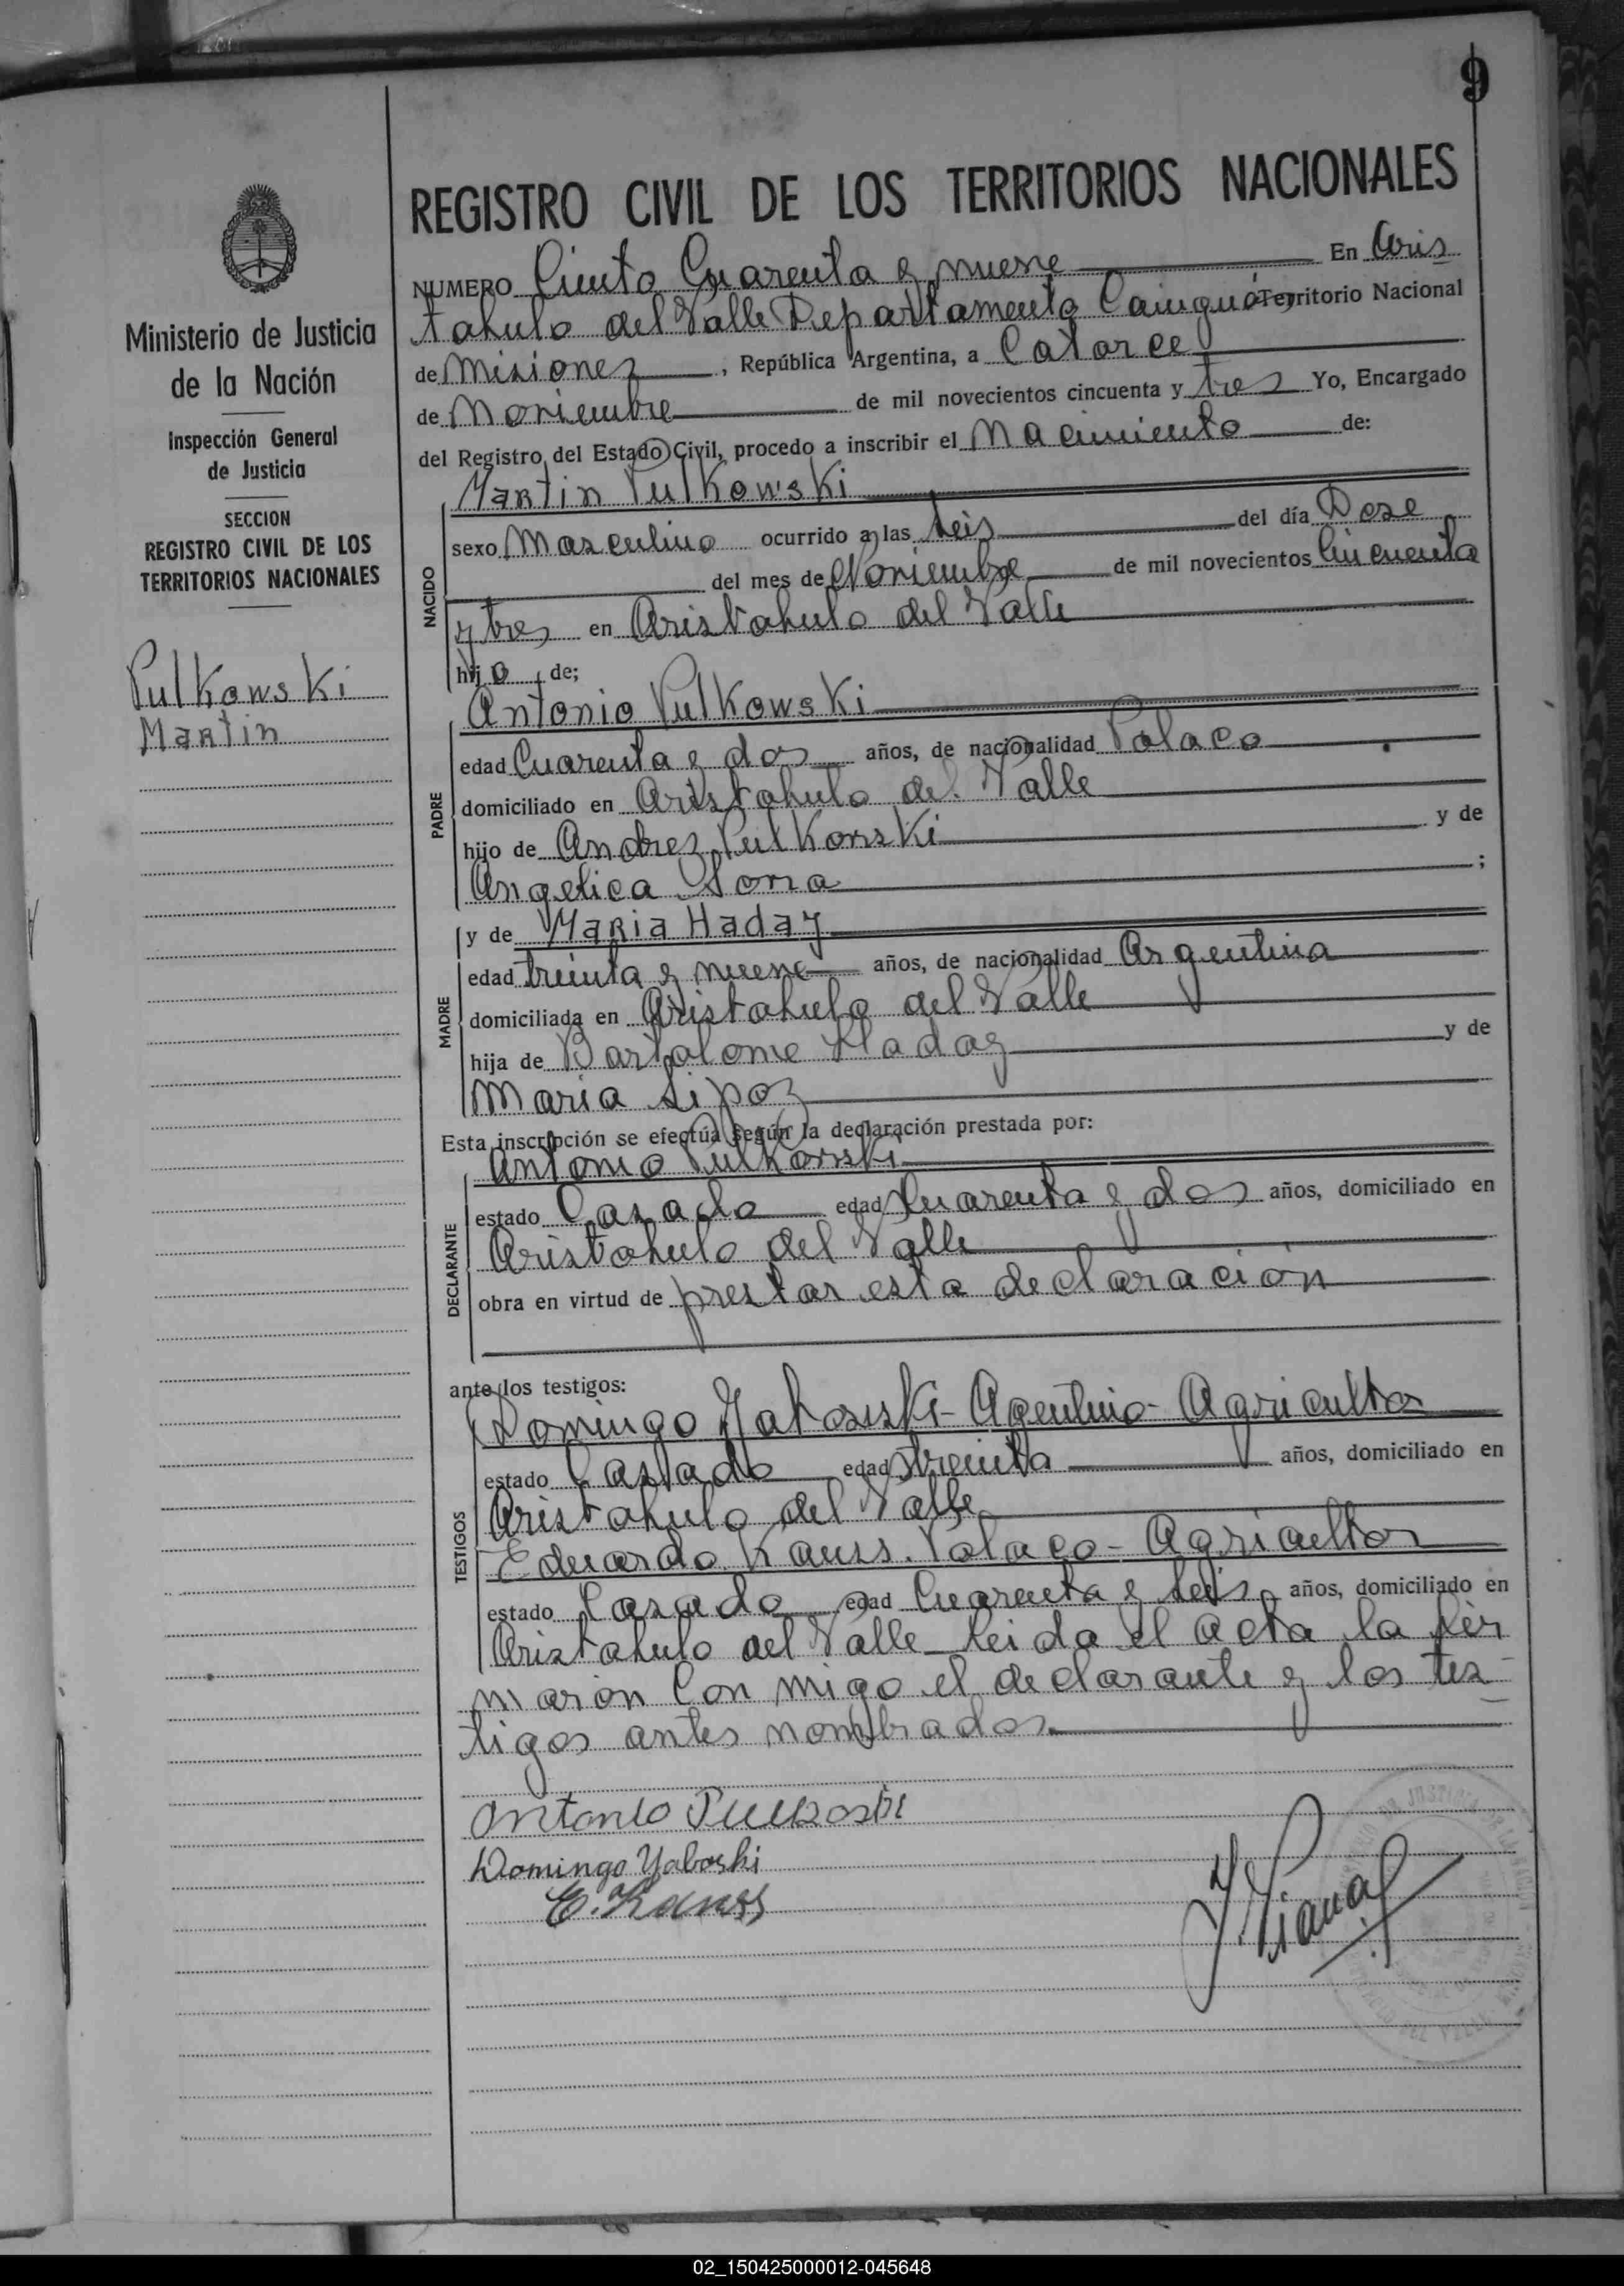 9
REGISTRO CIVIL DE LOS TERRITORIOS NACIONALES
NUMERO Ciento Cuarenta y nueve En Aris
tobulo del Valle Departamento Cainguás Territorio Nacional
de Misiones, República Argentina, a Catorce
de Noviembre de mil novecientos cincuenta y tres Yo, Encargado
del Registro del Estado Civil, procedo a inscribir el Nacimiento de:
Ministerio de Justicia
de la Nación
Inspección General
de Justicia
SECCION
REGISTRO CIVIL DE LOS
TERRITORIOS NACIONALES
Pulkowski
Martin
NACIDO
Martin Pulkowski
sexo Masculino ocurrido a las seis del día Doze
del mes de Noviembre de mil novecientos Cincuenta
y tres en Aristobulo del Valle
hijo de;
PADRE
Antonio Pulkowski
edad Cuarenta y dos años, de nacionalidad Polaco
domiciliado en Aristobulo del Valle
hijo de Andres Pulkowski y de
Angelica ;
MADRE
y de Maria Haday
edad treinta y nueve años, de nacionalidad Argentina
domiciliada en Aristobulo del Valle
hija de Bartolome Haday y de
Maria Sipoz
Esta inscripción se efectúa según la declaración prestada por:
DECLARANTE
Antonio Pulkowski
estado Casado edad Cuarenta y dos años, domiciliado en
Aristobulo del Valle
obra en virtud de prestar esta declaración
ante los testigos:
TESTIGOS
Domingo - Agentino - Agricultor
estado Casado edad treinta años, domiciliado en
Aristobulo del Valle
Eduardo Kauss. Polaco - Agricultor
estado Casado edad Cuarenta y seis años, domiciliado en
Aristobulo del Valle Leida el acta la fir
maron Con migo el declarante y los tes-
tigos antes nombrados.
Antonio
Domingo Yaboski
E. Kauss
02_150425000012-045648